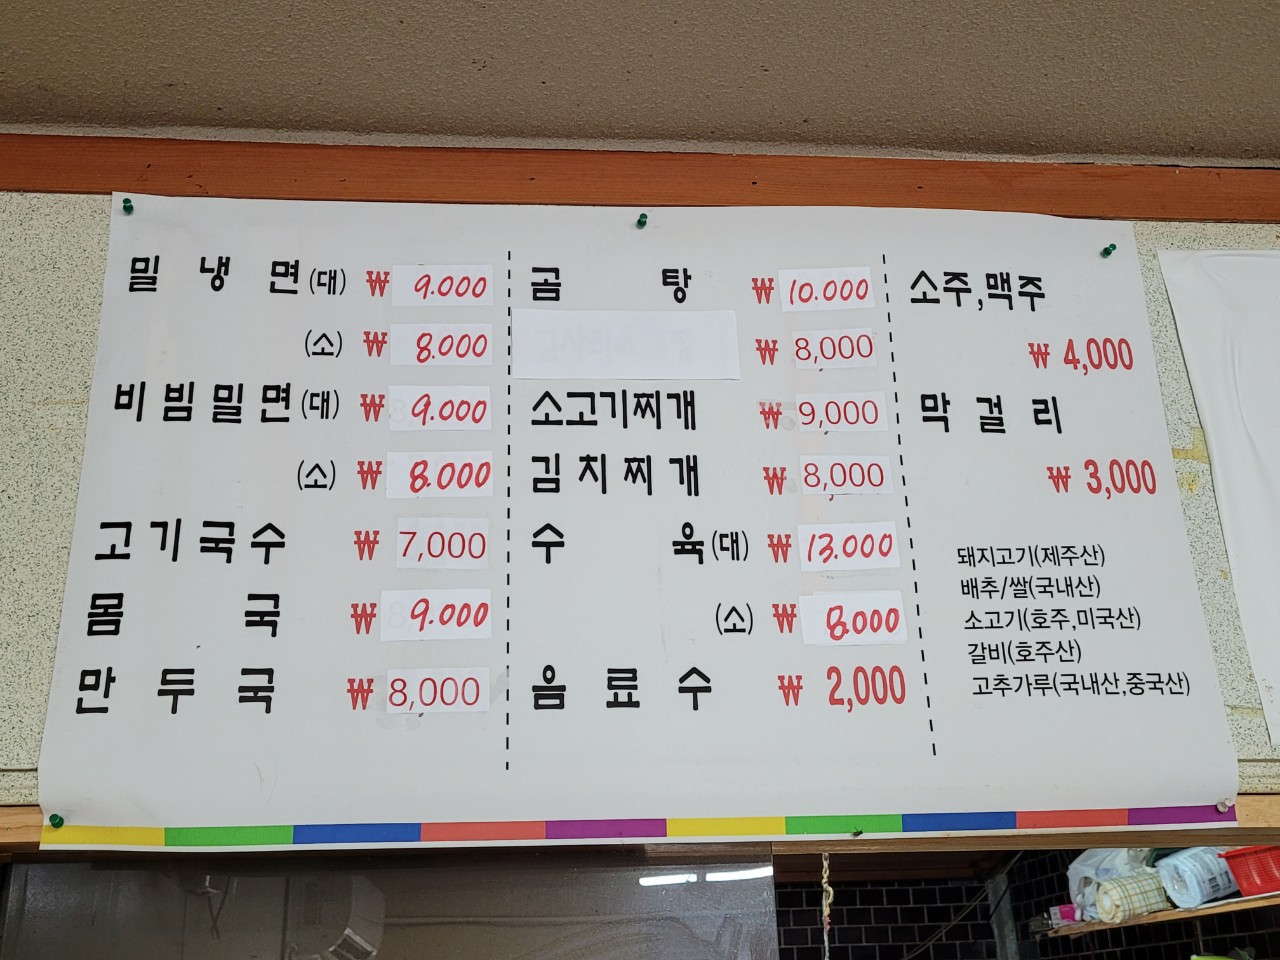 밀 냉 면(대) ₩ 9.000
(소) ₩ 8.000
비빔밀면(대) ₩ 9.000
(소) ₩ 8.000
고기국수 ₩ 7,000
몸 국 ₩ 9.000
만 두 국 ₩ 8,000
곰 탕 ₩ 10.000
₩ 8,000
소고기찌개 ₩ 9,000
김치찌개 ₩ 8,000
수 육(대) ₩ 13.000
(소) ₩ 8.000
음 료 수 ₩ 2,000
소주,맥주
₩ 4,000
막 걸 리
₩ 3,000
돼지고기(제주산)
배추/쌀(국내산)
소고기(호주,미국산)
갈비(호주산)
고추가루(국내산,중국산)